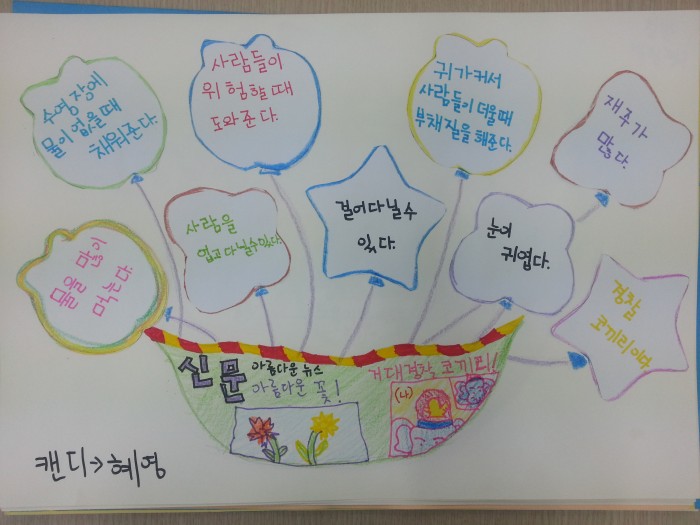 수영장에
물이 없을때
채워준다.
사람들이
위험할때
도와준다.
귀가커서
사람들이 더울때
부채질을 해준다.
재주가
많다.
물을 많이
먹는다.
사람을
업고다닐수있다.
걸어다닐수
있다.
눈이
귀엽다.
경찰
코끼리아빠
신문
아름다운 뉴스
아름다운 꽃!
거대경찰 코끼리!
(나)
캔디→혜영